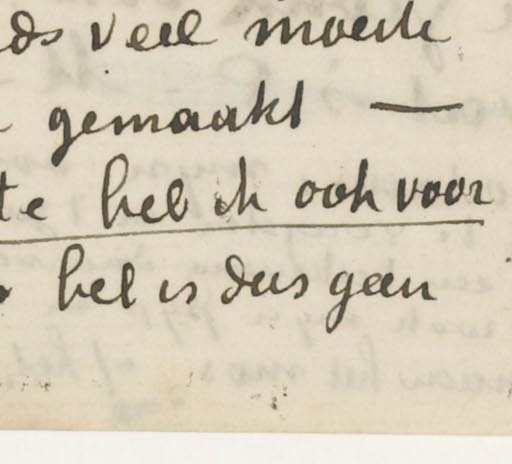 ds veel moeite
gemaakt —
te heb ik ook voor
het is dus geen